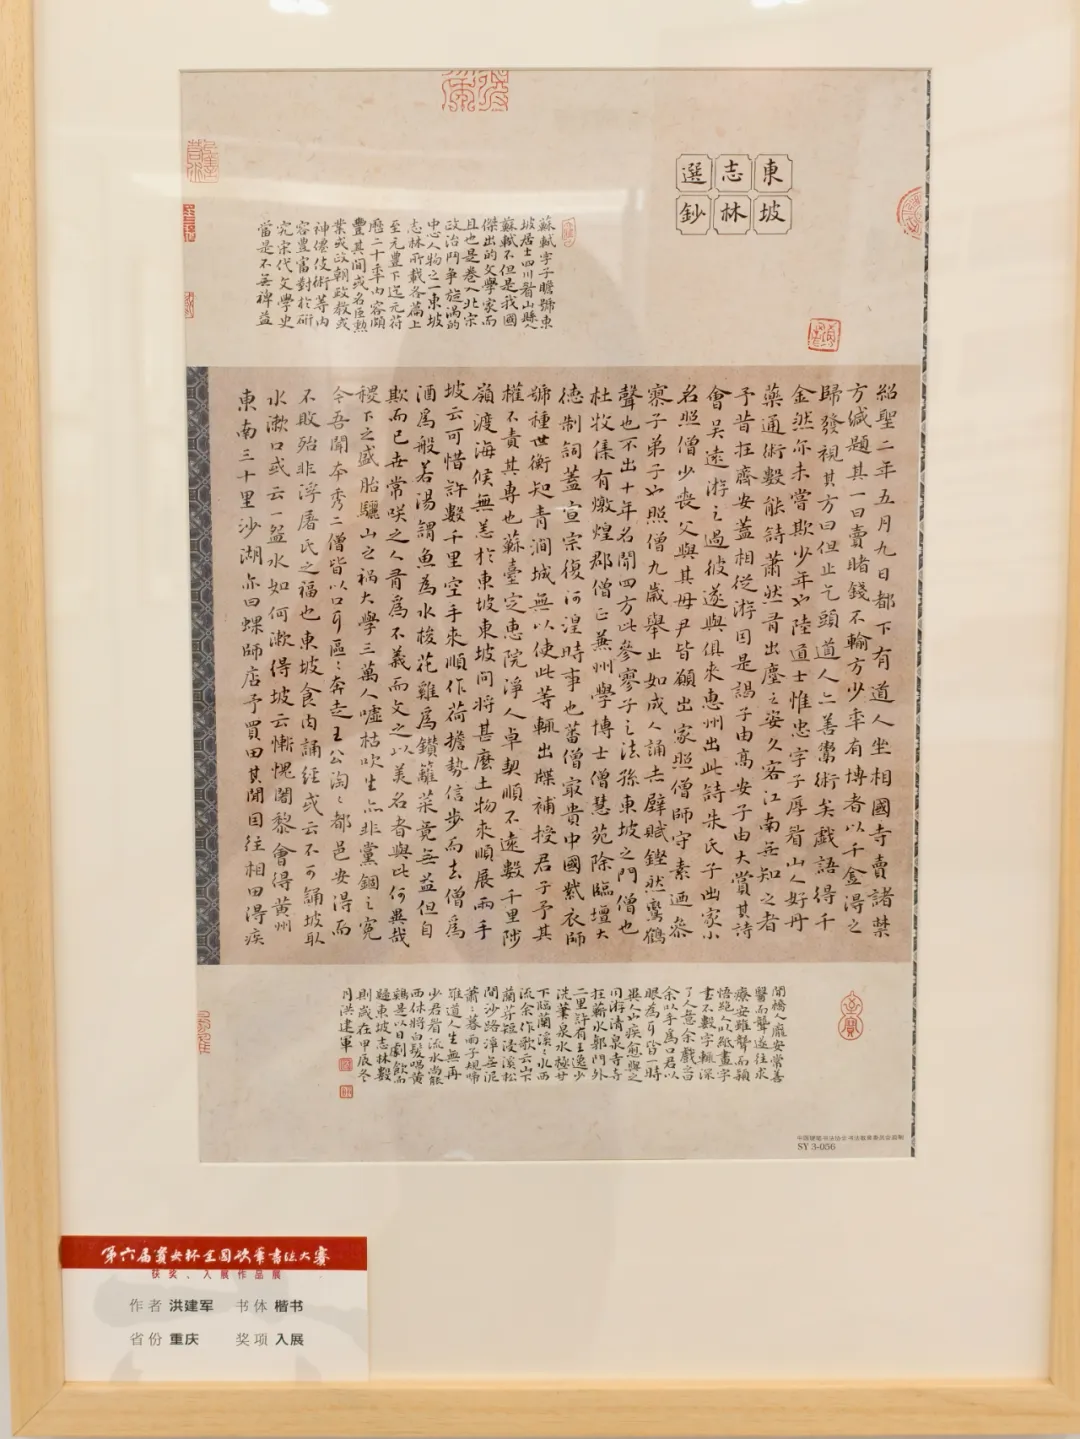 東坡
志林
選鈔
蘇軾字子瞻號東
坡居士四川眉山縣人
蘇軾不但是我國
傑出的文學家而
且也是卷入北宋
政治鬥争旋渦的
中心人物之一東坡
志林所載各篇上
至元豐下迄元符
曆二十年内容頗
豐其間或名臣勲
業或政朝政教或
神僊伎術等内
容豐富對於研
究宋代文學史
當是不無裨益
紹聖二年五月九日都下有道人坐相國寺賣諸禁
方緘題其一曰賣賭錢不輸方少年有博者以千金得之
歸發視其方曰但止乞頭道人二善鬻術矣戲語得千
金然亦未嘗欺少年也陸道士惟忠字子厚眉山人好丹
藥通術數能詩蕭然有出塵之姿久客江南無知之者
予昔在齊安蓋相從游因是謁子由高安子由大賞其詩
會吴遠游之過彼遂與俱來惠州出此詩朱氏子出家小
名照僧少喪父與其母尹皆願出家照僧師守素迺參
寥子弟子也照僧九歲舉止如成人誦赤壁賦鏗然鸞鶴
聲也不出十年名聞四方此參寥子之法孫東坡之門僧也
杜牧集有燉煌郡僧正兼州學博士僧慧苑除臨壇大
德制詞蓋宣宗復河湟時事也蕃僧最貴中國紫衣師
號種世衡知青澗城無以使此等輒出牒補授君子予其
權不責其專也蘇臺定惠院淨人卓契順不遠數千里陟
嶺渡海候無恙於東坡東坡問將甚麽土物來順展兩手
坡云可惜許數千里空手來順作荷擔勢信步而去僧爲
酒爲般若湯謂魚爲水梭花雞爲鑽籬菜竟無益但自
欺而已世常咲之人有爲不義而文之以美名者與此何異哉
稷下之盛胎驪山之禍大學三萬人嘘枯吹生亦非黨錮之冤
今吾聞本秀二僧皆以口耳區〻奔走王公洶〻都邑安得而
不敗殆非浮屠氏之福也東坡食肉誦經或云不可誦坡取
水漱口或云一盌水如何漱得坡云慚愧闍黎會得黄州
東南三十里沙湖亦曰螺師店予買田其閒因往相田得疾
聞橋人龐安常善
醫而聾遂往求
療安雖聾而穎
悟絶人以紙畫字
書不數字輒深
了人意余戲之曰
余以手爲口君以
眼爲耳皆一時
異人也疾愈與之
同游清泉寺寺
在蘄水郭門外
二里許有王逸少
洗筆泉水極甘
下臨蘭溪〻水西
流余作歌云山下
蘭芽短浸溪松
間沙路淨無泥
蕭〻暮雨子規啼
誰道人生無再
少君看流水尚能
西休將白髮唱黄
雞是以日劇飲而
題東坡志林數
則歲在甲辰冬
月洪建軍
中国硬笔书法协会书法教育委员会监制
SY 3-056
第六届赏心杯全国硬笔书法大赛
获奖、入展作品展
作者 洪建军 书体 楷书
省份 重庆 奖项 入展